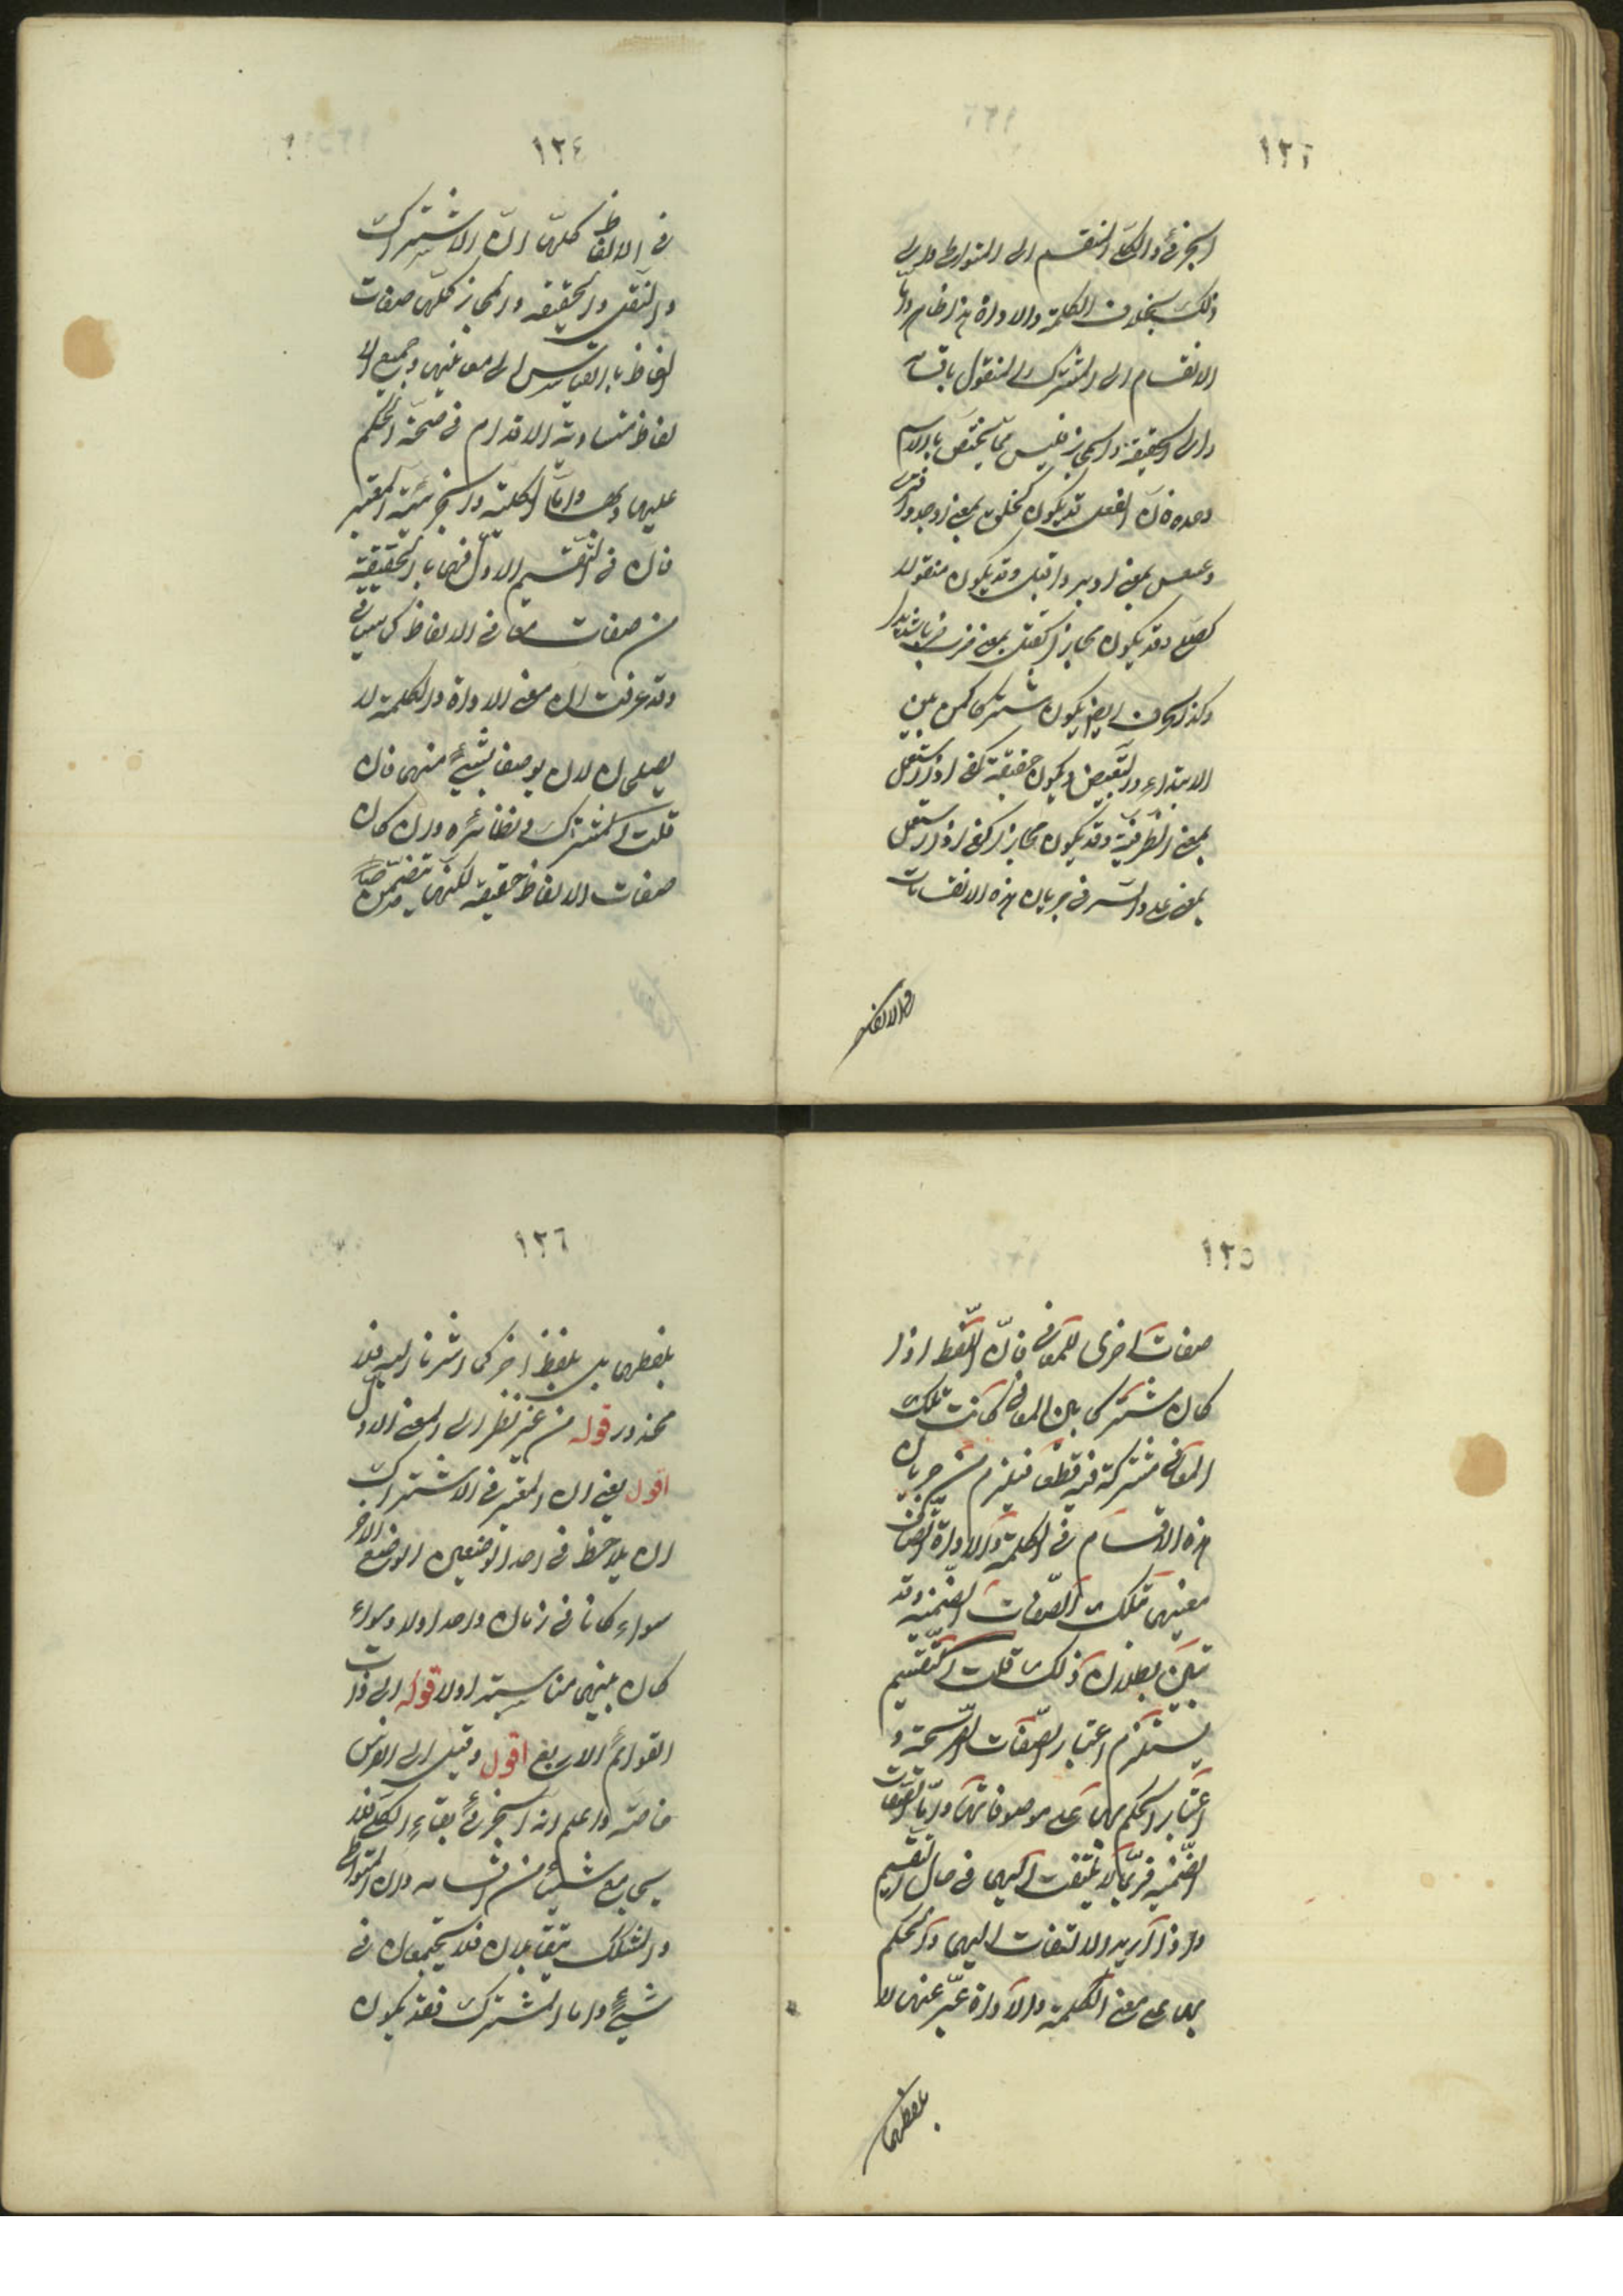 ١٢٣
الجزئي والكلي المنقسم الى المتواطي والى
ذلك بخلاف الكلمة والاداة هذا ظاهر واما
الانقسام الى المشترك والمنقول باقسامه
والى الحقيقة والمجاز فليس مما يختص بالاسم
وحده فان الفعل قد يكون كخلق بمعنى اوجد وافترى
وعسعس بمعنى ادبر واقبل وقد يكون منقولا
كصلى وقد يكون مجازا كقتل بمعنى ضرب ضربا شديدا
وكذا الحرف ايضا يكون مشتركا كمن بين
الابتداء والتبعيض ويكون حقيقة كفى اذا استعمل
بمعنى الظرفية وقد يكون مجازا كفى اذا استعمل
بمعنى على والسر في جريان هذه الانقسامات
١٢٤
في الالفاظ كلها ان الاشتراك
والنقل والحقيقه والمجاز كلها صفات
الفاظ بالقياس الى معانيها وجميع الا
لفاظ متساوية الاقدام في صحة الحكم
عليها وبها واما الكلية والجزئية المعتبر
فان في التقسيم الاول فهما بالحقيقة
من صفات معاني الالفاظ كما سياتي
وقد عرفت ان معنى الاداة والكلمة لا
يصلحان لان يوصفا بشيء منهما فان
قلت المشترك ونظائره وان كان
صفات الالفاظ حقيقة لكنها يتضمن
١٢٥
صفات اخرى للمعاني فان اللفظ اذا
كان مشتركا بين المعاني كانت تلك
المعاني مشتركة فيه قطعا فيلزم من جريان
هذه الاقسام في الكلمة والاداة اتصاف
معنيهما بتلك الصفات الضمنيه وقد
تبين بطلان ذلك قلت التقسيم
يستلزم اعتبار الصفات الصريحة و
اعتبار الحكم بها على موصوفاتها واما الصفات
الضمنيه فربما لا يلتفت اليها في حال التقسيم
واذا اريد الالتفات اليها والحكم
بها على معنى الكلمة والاداة عبر عنهما لا
بلفظهما
١٢٦
بلفظهما بل بلفظ اخر كما اشرنا اليه فلا
محذور قوله من غير نظر الى المعنى الاول
اقول يعني ان المعتبر في الاشتراك
ان لا يلاحظ في احد الوضعين الوضع الاخر
سواء كانا في زمان واحد اولا وسواء
كان بينهما مناسبة اولا قوله الى ذات
القوائم الاربع اقول وقيل الى الفرس
خاصة واعلم ان الجزئي يقابل الكلي فلا
يجامع شيئا من اقسامه وان المتواطي
والمشكك يتقابلان فلا يجتمعان في
شيء واما المشترك فقد يكون